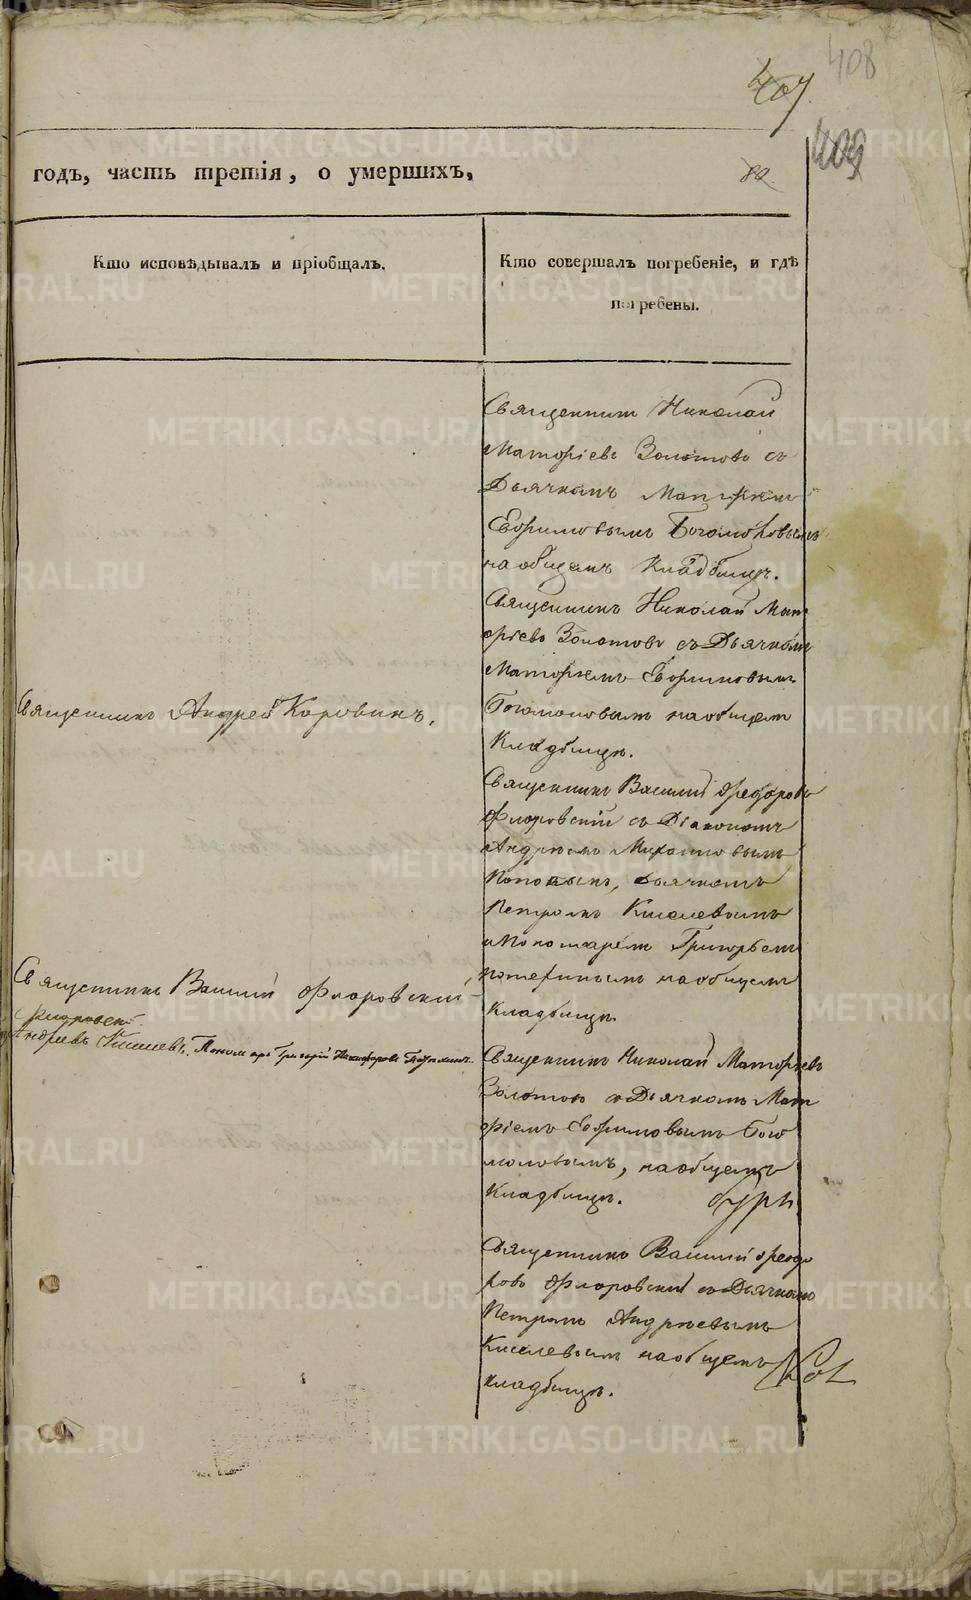 408
407
409
годъ, часть третія, о умершихъ,
80
Кто исповѣдывалъ и пріобщалъ.
Кто совершалъ погребеніе, и гдѣ
погребены.
Священникъ Николай
Матфіевъ Золотовъ съ
Дьячкомъ Матфіемъ
Ефримовымъ Богомоловымъ
на общемъ Кладбищѣ.
Священникъ Николай Мат
фіевъ Золотовъ съ Дьячкомъ
Матфіемъ Ефримовымъ
Богомоловымъ на общемъ
Кладбищѣ.
Священникъ Андрей Коровинъ.
Священникъ Василій Ѳедоровъ
Флоровскій съ Діакономъ
Андреемъ Михайловымъ
Поповымъ, дьячкомъ
Петромъ Киселевымъ
и Пономаремъ Григорьемъ
на общемъ
Кладбищѣ.
Священникъ Василій Флоровскій
Андреевъ Киселевъ. Пономарь Григорій Никифоровъ
Священникъ Николай Матфіевъ
Золотовъ съ Дьячкомъ Мат
фіемъ Ефримовымъ Бого
моловымъ, на общемъ
Кладбищѣ.
Священникъ Василій Ѳеодо
ровъ Флоровскій съ Дьячкомъ
Петромъ Андреевымъ
Киселевымъ на общемъ
кладбищѣ.
METRIKI.GASO-URAL.RU